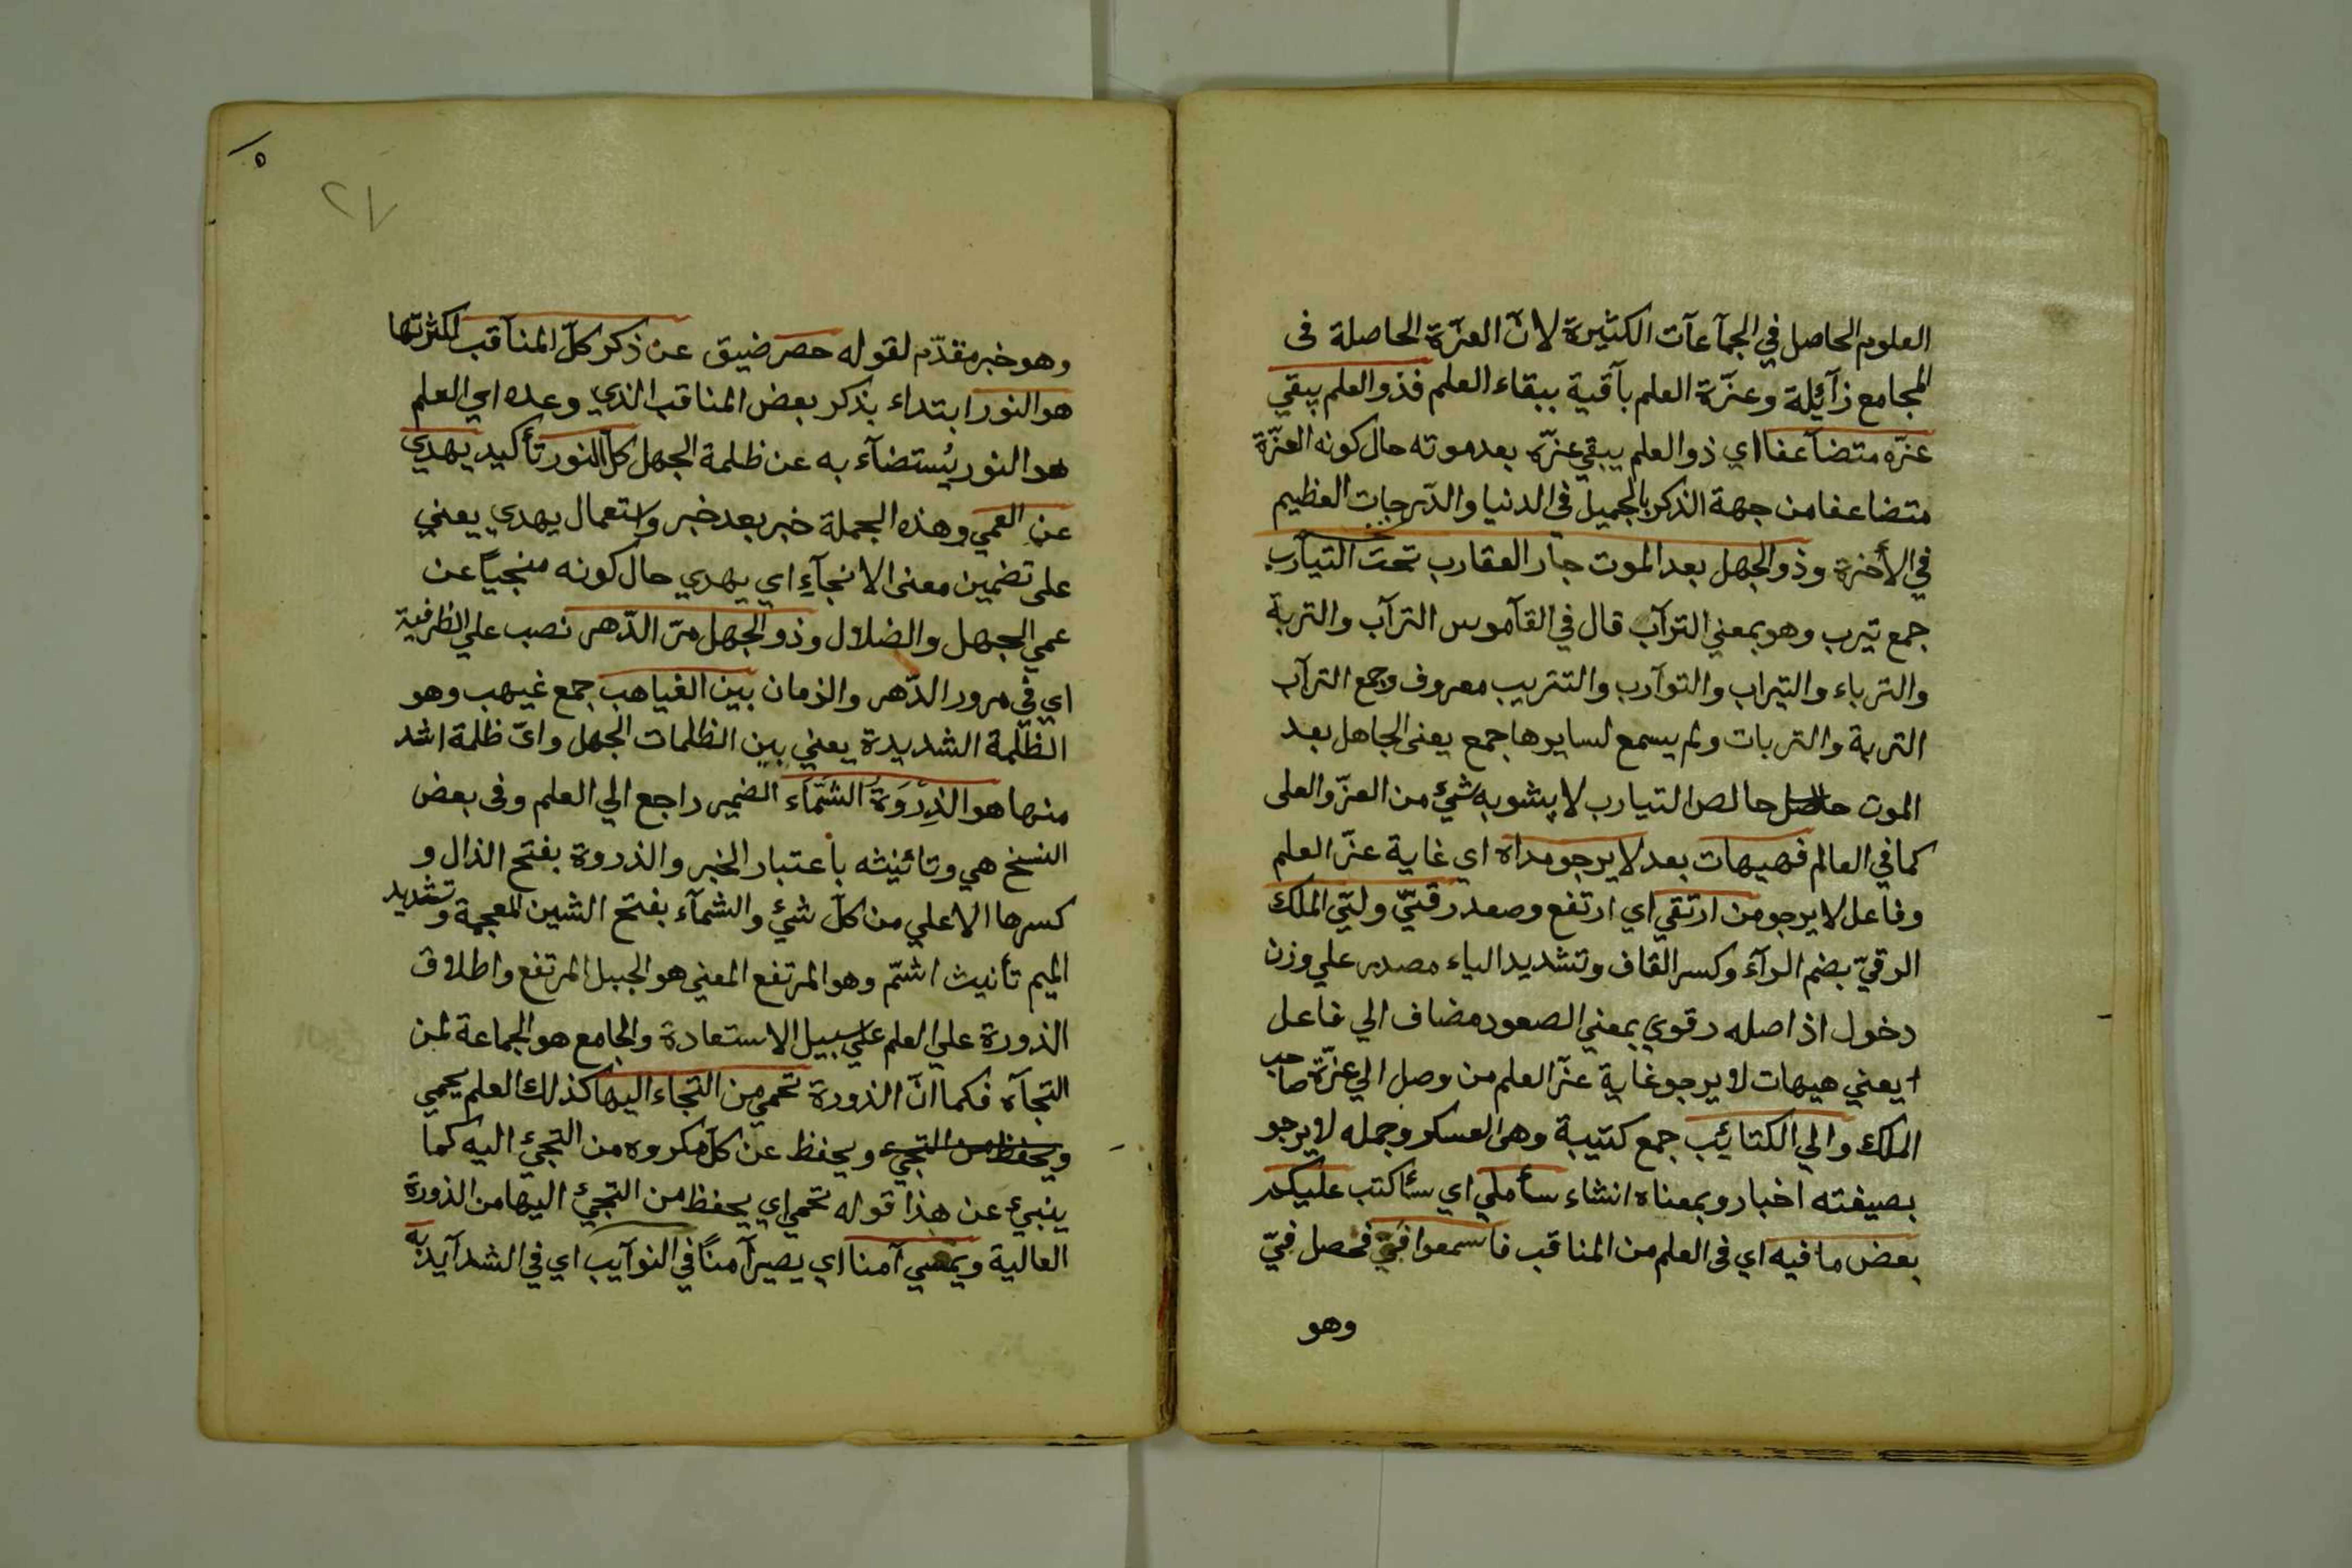 العلوم الحاصل في الجمآعآت الكثيرة لانّ العزّة الحاصلة فى
المجامع زآئلة وعزّة العلم بآقية ببقاء العلم فذو العلم يبقي
عزّه متضآعفا اي ذو العلم يبقي عزّه بعد موته حال كونه العزّة
متضاعفا من جهة الذكر بالجميل فى الدنيا والدّرجات العظيم
في الأخرة وذو الجهل بعد الموت جار العقارب تحت التيآرب
جمع تيرب وهو بمعني الترآب قال في القآموس الترآب والتربة
والترباء والتيراب والتوآرب والتتريب معروف وجمع الترآب
التربة والتربات ولم يسمع لسايرها جمع يعنى الجاهل بعد
الموت حاصل خالص التيارب لا يشوبه شئ من العزّ والعلى
كما في العالم فهيهات بعد لا يرجو مداه اي غاية عزّ العلم
وفاعل لا يرجو من ارتقي اي ارتفع وصعد رقيّ ولتيّ الملك
الرقيّ بضم الرآء وكسر القاف وتشديد الياء مصدر علي وزن
دخول اذ اصله رقوي بمعني الصعود مضاف الي فاعل
ا يعني هيهات لا يرجو غاية عزّ العلم من وصل الي عزّة صاحب
الملك والي الكتائب جمع كتيبة وهى العسكر وجمله لا يرجو
بصيغته اخبار وبمعناه انشاء سأملي اي سأكتب عليكم
بعض ما فيه اي فى العلم من المناقب فاسمعوا فيّ فحصل فيّ
وهو
٥
٢٧
وهو خبر مقدّم لقوله حصر ضيق عن ذكر كلّ المنآقب لكثرتها
هو النور ابتداء بذكر بعض المناقب الذي وعده اي العلم
هو النور يُستضآء به عن ظلمة الجهل كلّ النور تأكيد يهدي
عن العمي وهذه الجملة خبر بعد خبر واستعمال يهدي يعني
على تضمين معنى الانجآء اي يهدي حال كونه منجياً عن
عمي الجهل والضلال وذو الجهل مرّ الدّهر نصب علي الظرفية
اي في مرور الدّهر والزمان بين الغياهب جمع غيهب وهو
الظلمة الشديدة يعني بين الظلمات الجهل واىّ ظلمة اشد
منها هو الذِرْوَةُ الشَّمّاء الضمير راجع الي العلم وفى بعض
النسخ هي وتائنيثه باعتبار الخبر والذروة بفتح الذال و
كسرها الاعلي من كلّ شئ والشمآء بفتح الشين المعجمة وتشديد
الميم تأنيث اشمّ وهو المرتفع المعني هو الجبل المرتفع واطلاق
الذورة علي العلم علي سبيل الاستعادة والجامع هو الجماعة لمن
التجآه فكما انّ الذورة تحمي من التجاء اليها كذلك العلم يحمي
ويحفظ من التجئ ويحفظ عن كلّ مكروه من التجئ اليه كما
ينبئ عن هذا قوله تحمي اي يحفظ من التجئ اليها من الذورة
العالية ويمسي آمنا اي يصير آمناً في النوآيب اي في الشدآيد به